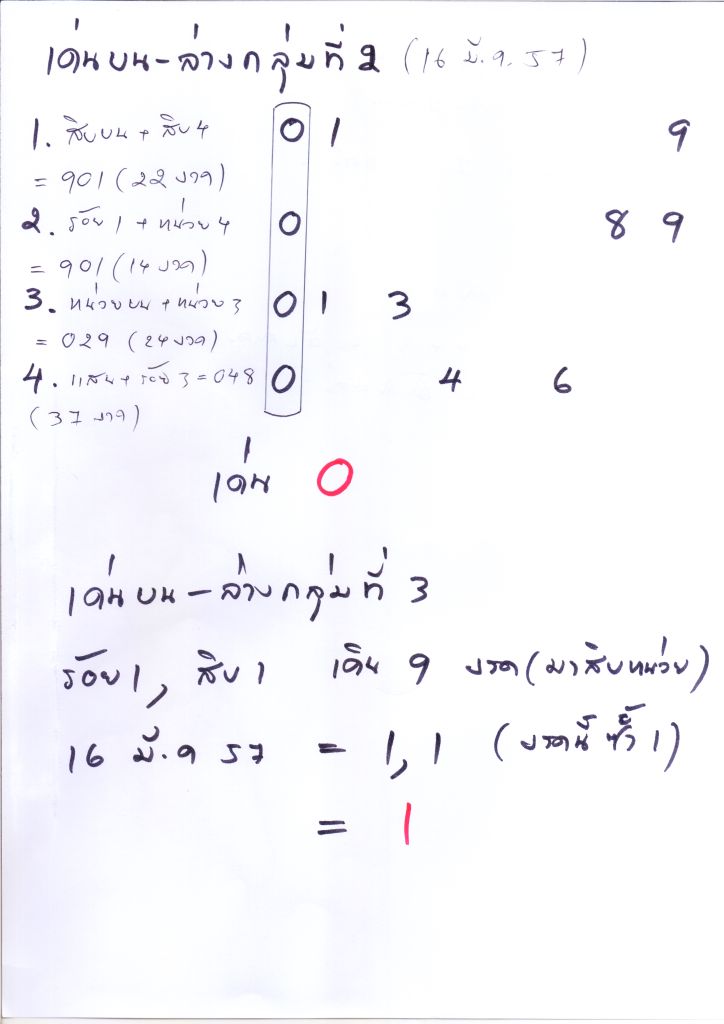 เด่นบน-ล่างกลุ่มที่ 2 (16 มี.ค. 57)
1. สิบบน + สิบ 4 0 1 9
= 901 (22 งวด)
2. ร้อย 1 + หน่วย 4 0 8 9
= 901 (14 งวด)
3. หน่วยบน + หน่วย 3 0 1 3
= 029 (24 งวด)
4. แสน + ร้อย 3 = 048 0 4 6
(37 งวด)
เด่น 0
เด่นบน-ล่างกลุ่มที่ 3
ร้อย 1, สิบ 1 เดิน 9 งวด (มาสิบหน่วย)
16 มี.ค 57 = 1, 1 (งวดนี้ ซ้ำ 1)
= 1